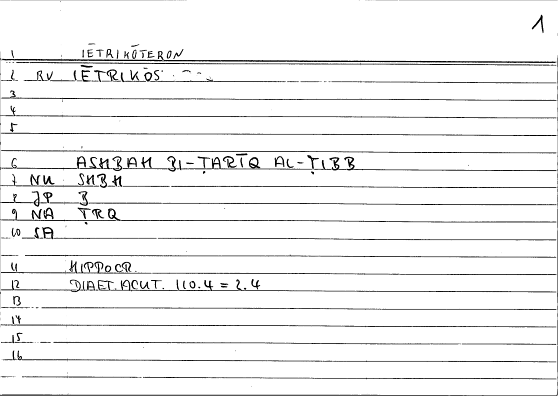 1
1 IĒTRIKŌTERON
2 RV IĒTRIKOS
3
4
5
6 ASHBAH BI-ṬARĪQ AL-ṬIBB
7 NU SHBH
8 JP B
9 NA ṬRQ
10 SA
11 HIPPOCR.
12 DIAET. ACUT. 110.4 = 2.4
13
14
15
16